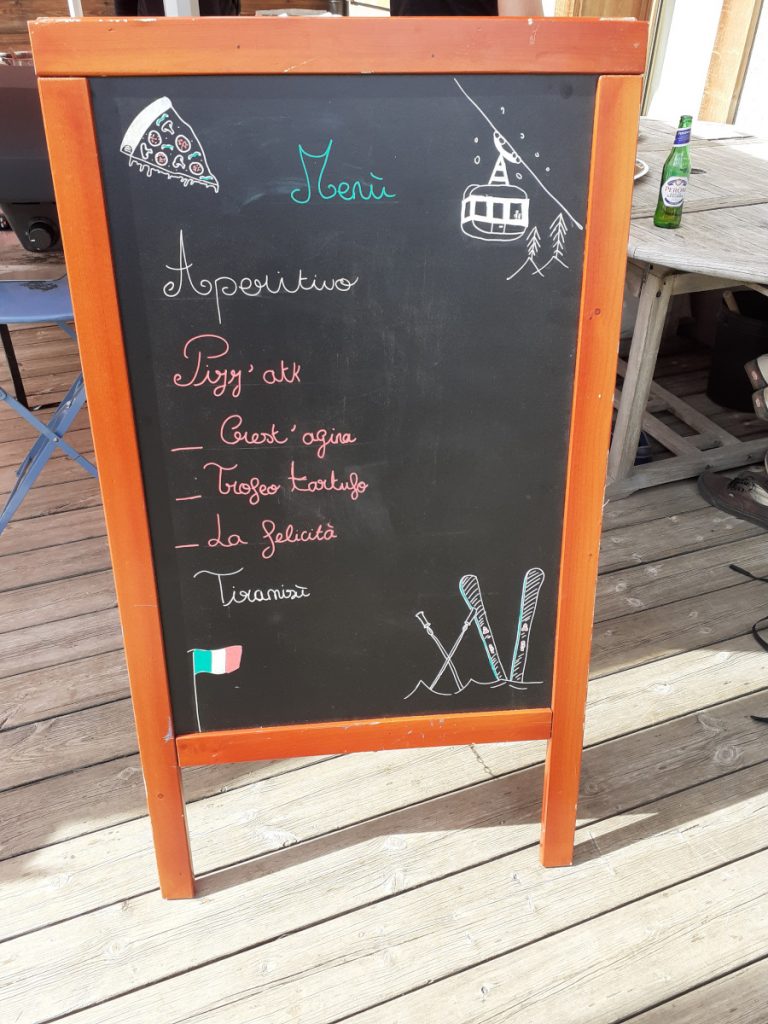 Menù
PERONI
Aperitivo
Pizz'atk
_ Crest'agina
_ Trofeo tartufo
_ La felicità
Tiramisì